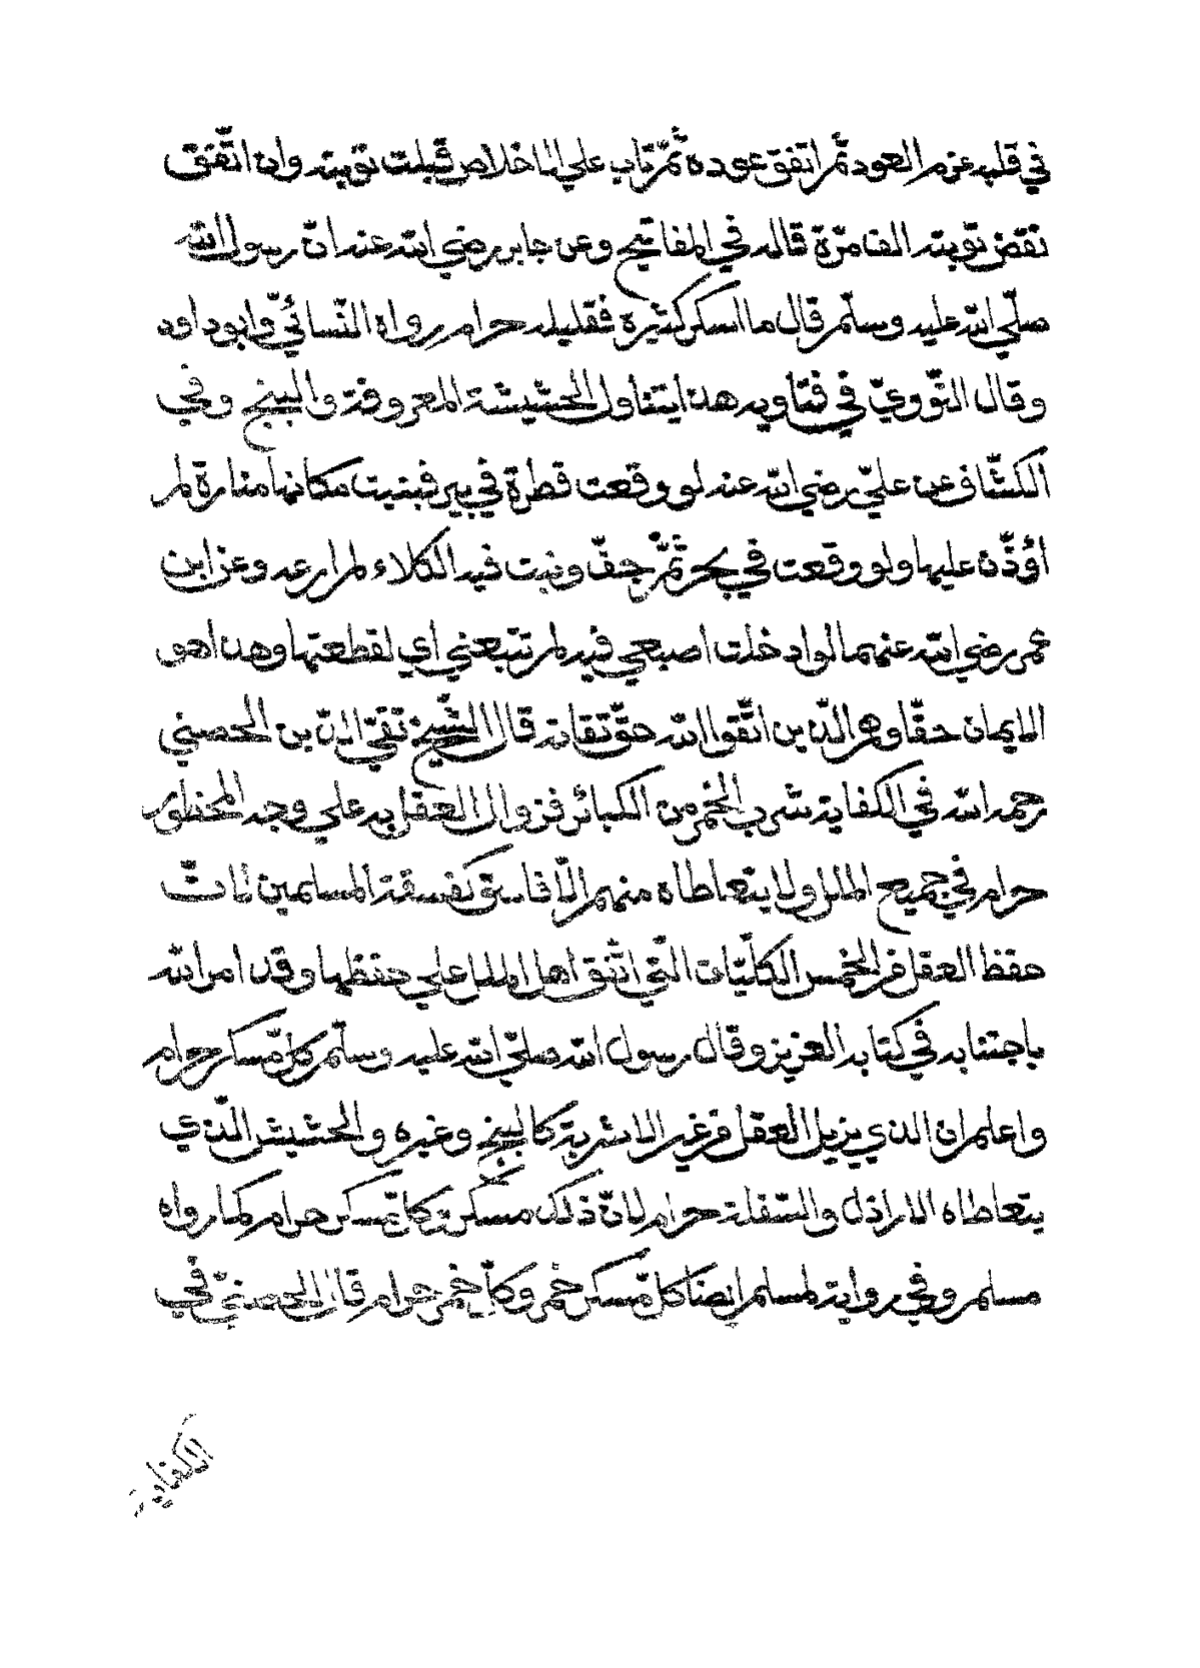 في قلبه عزم العود ثمّ اتفق عوده ثمّ تاب علي الاخلاص قبلت توبته وان اتّفق
نقض توبته القامرّة قاله في المفاتيح وعن جابر رضي الله عنه انّ رسول الله
صلّي الله عليه وسلّم قال ما اسكر كثيره فقليله حرام رواه النّسائيّ وابوداود
وقال النّوويّ في فتاويه هذا يتناول الحشيشة المعروفة والبنج وفي
الكشّاف عن عليّ رضي الله عنه لو وقعت قطرة في بير فبنيت مكانها منارة لم
اؤذّن عليها ولو وقعت في بحر ثمّ جفّ ونبت فيه الكلاء لم ارعه وعن ابن
عمر رضي الله عنهما لو ادخلت اصبعي فيه لم تتبعني اي لقطعتها وهذا هو
الايمان حقّا وهم الّذين اتّقوا الله حقّ تقاته قال الشّيخ تقيّ الدّين بن الحصني
رحمه الله في الكفاية شرب الخمر من الكبائر فزوال العقل به علي وجه المحظور
حرام في جميع الملل ولا يتعاطاه منهم الّا فاسق كفسقة المسلمين لانّ
حفظ العقل من الخمس الكلّيّات الّتي اتّفق اهل الملل علي حفظها وقد امر الله
باجتنابه في كتابه العزيز وقال رسول الله صلّي الله عليه وسلّم كلّ مّسكر حرام
واعلم ان الذي يزيل العقل من غير الاشربة كالبنج وغيره والحشيش الّذي
يتعاطاه الاراذل والسّفلة حرام لانّ ذلك مسكر وكلّ مّسكر حرام كما رواه
مسلم وفي رواية لمسلم ايضا كلّ مّسكر خمر وكلّ خمر حرام قال الحصنيّ في
الكفاية